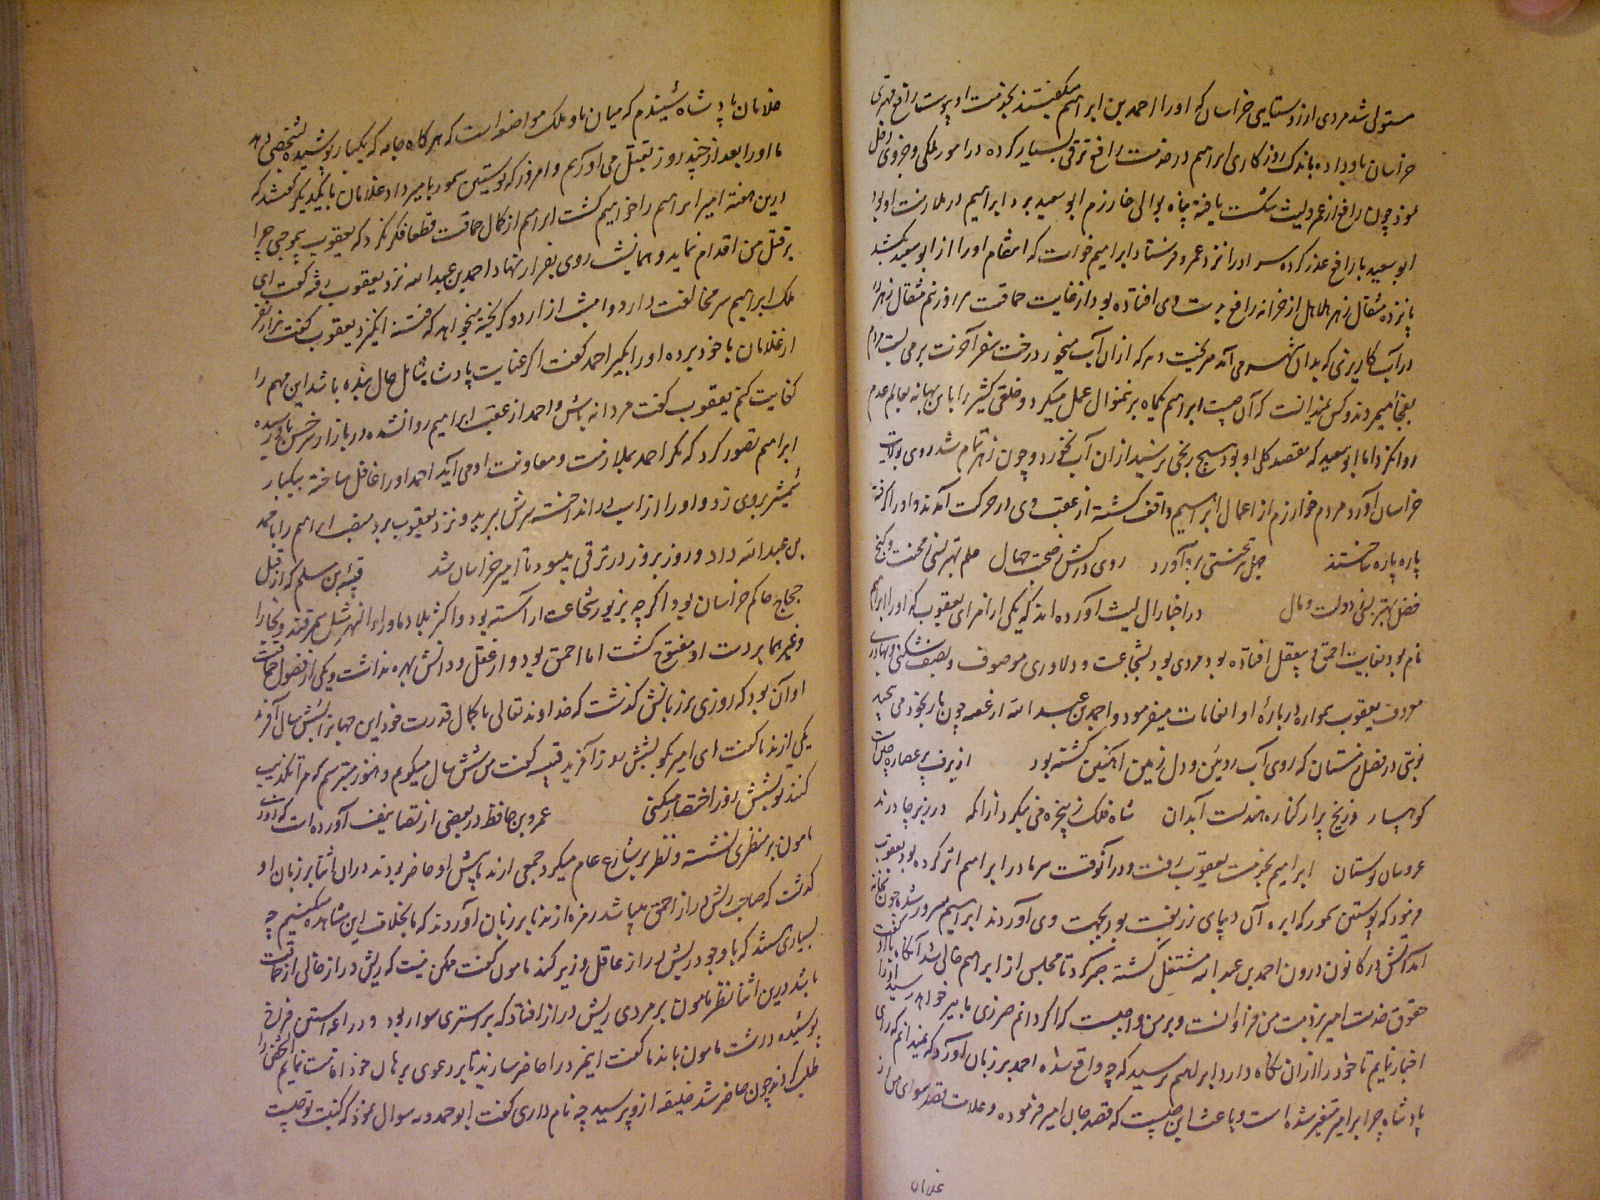 مستولی شد مردی از روستایی خراسان که او را احمد بن ابراهیم میگفتند بخدمت او پیوست رافع مهتری
خراسان باو داده باندک روزکاری ابراهیم در خدمت رافع ترقی بسیار کرده در امور ملکی و جزوی دخل
نمود چون رافع از عمرو لیث شکست یافته پناه بوالی خوارزم ابو سعید برد ابراهیم در ملازمت او بود
ابو سعید با رافع غدر کرده سر او را نزد عمرو فرستاد ابراهیم خواست که انتقام او را از ابو سعید بکشد
پانزده مثقال زهر هلاهل از خزانه رافع بدست وی افتاده بود از غایت حماقت هر روز نیم مثقال زهر
در آب کاریزی که بدان شهر می آمد میریخت و هر که از آن آب میخورد رخت سفر آخرت بر می بست مردم
بفجأ میمردند و کس نمیدانست که آن چیست ابراهیم یکماه برینمنوال عمل میکرد و خلقی کثیر را باین بهانه بعالم عدم
روانکرد اما ابو سعید که مقصد کلی او بود هیچ رنجی نرسید از آن آب نخورد و چون زهر تمام شد روی بولایت
خراسان آورد مردم خوارزم از اعمال ابراهیم واقف کشته از عقب وی در حرکت آمدند و او را گرفته
پاره پاره ساختند جهل بدبختی بر آورد روی درکش ز صحبت جهال علم بهتر بسی از محنت و کنج
فضل بهتر بسی ز دولت و مال در اخبار ال لیث آورده اند که یکی از امرای یعقوب که او را ابراهیم
نام بود بغایت احمق و بیعقل افتاده بود مردی بود بشجاعت و دلاوری موصوف و بصف شکنی و بهادری
معروف یعقوب همواره درباره او انعامات میفرمود و احمد بن عبد الله از غصه چون مار بخود می پیچید
نوبتی در فصل زمستان که روی آب روئین و دل زمین آهنین کشته بود از برف بر عصاره
کوهسار و ز یخ بر ار کناره هندست آبدان شاه فلک ز پنجره می میکرد از انکه در زیر چادرند
عروسان بوستان ابراهیم بخدمت یعقوب رفت و در آنوقت سرما در ابراهیم اثر کرده بود یعقوب
فرمود که پوستین سمور که ابره آن دیبای زربفت بود بجهت وی آوردند ابراهیم مسرور شده چون بخانه
آمد آتش در کانون درون احمد بن عبد الله مشتعل گشته صبر کرد تا مجلس از ابراهیم خالی شد آنگاه با او گفت
حقوق خدمت امیر بر ذمت من فراوانست و بر من واجبست که اگر دانم ضرری بامیر خواهد رسید او را
اخبار نمایم تا خود را از آن نگاه دارد ابراهیم پرسید که چه واقع شده احمد بر زبان آورد که نمیدانم که رای
پادشاه چرا بر امیر متغیر شده است و باعث این چیست که قصد جان امیر فرموده و علامت قصد سوای من از
غلامان
غلامان پادشاه شنیدم که میان ما و ملک مواضعه است که هر گاه جامه که یکبار پوشیده بشخصی دهد
ما او را بعد از چند روز بقتل می آوریم و امروز که پوستین سمور بامیر داد غلامان با یکدیگر گفتند که
درین هفته امیر ابراهیم را خواهیم کشت ابراهیم از کمال حماقت قطعا فکر نکرد که یعقوب بیموجبی چرا
بر قتل من اقدام نماید و همان شب روی بفرار نهاد احمد بن عبد الله نزد یعقوب رفته گفت ای
ملک ابراهیم سر مخالفت دارد و امشب از اردو گریخته میخواهد که فتنه انگیزد یعقوب گفت هزار نفر
از غلامان با خود برده او را بگیر احمد گفت اگر عنایت پادشاه شامل حال بنده باشد این مهم را
کفایت کنم یعقوب گفت مردانه باش و احمد از عقب ابراهیم روانشده در بازار سرخس باو رسیده
ابراهیم تصور کرد که مگر احمد بملازمت و معاونت او می آید احمد او را غافل ساخته بیکبار
شمشیر بروی زد و او را از اسب در انداخته سرش ببرید و نزد یعقوب برد منصب ابراهیم را باحمد
بن عبد الله داد و روز بروز در ترقی میبود تا امیر خراسان شد قتیبه بن مسلم که از قبل
حجاج حاکم خراسان بود اگر چه بزیور شجاعت آراسته بود و اکثر بلاد ماوراء النهر مثل سمرقند و بخارا
و غیر هما بر دست او مفتوح گشت اما احمق بود و از عقل و دانش بهره نداشت و یکی از فضول حماقت
او آن بود که روزی بر زبانش گذشت که خداوند تعالی با کمال قدرت خود این جهان را بشش سال آفرید
یکی از ندما گفت ای امیر بگو بشش روز آفرید قتیبه گفت من شش سال میگویم و هنوز میترسم که مرا تکذیب
کنند تو بشش روز اختصار میکنی عمرو بن حافظ در بعضی از تصانیف آورده است که روزی
مامون بر منظری نشسته و نظر بر شارع عام میکرد جمعی از ندما پیش او حاضر بودند در آن اثنا بر زبان او
گذشت که صاحب ریش دراز احمق میباشد زمره از ندما بر زبان آوردند که ما بخلاف این مشاهده میکنیم چه
بسیاری هستند که با وجود ریش دراز عاقل و زیرکند مامون گفت ممکن نیست که ریش دراز خالی از حماقت
باشد درین اثنا نظر مامون بر مردی ریش دراز افتاد که بر استری سوار بود و دراعه آستین فراخ
پوشیده در پشت مامون با ندما گفت اینمرد را حاضر سازید تا بر دعوی بر حال خود اقامت نمایم آنشخص را
طلب کردند چون حاضر شد خلیفه از و پرسید چه نام داری گفت ابو حمدویه سوال نمود که کنیت تو چیست